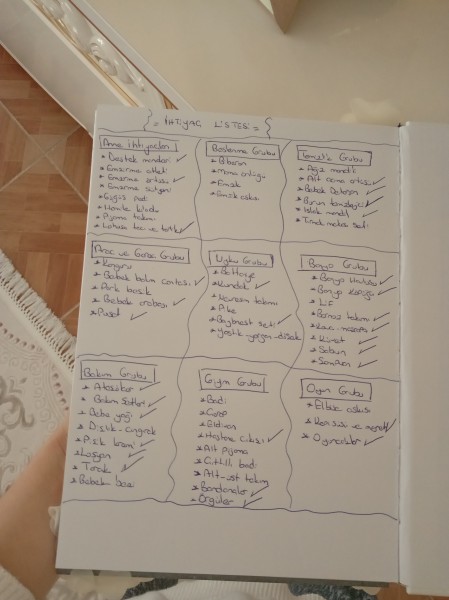 = İHTİYAÇ LİSTESİ =
Anne İhtiyaçları
* Destek minderi ✓
* Emzirme atleti
* Emzirme örtüsü ✓
* Emzirme sütyeni
* Göğüs pedi
* Hamile külodu
* Pijama takımı
* Lohusa tacı ve terliği ✓
Beslenme Grubu
* Biberon
* Mama önlüğü
* Emzik
* Emzik askısı
Temizlik Grubu
* Ağız mendili
* Alt açma örtüsü ✓
* Bebek Deterjanı ✓
* Burun temizleyici ✓
* Islak mendil ✓
* Tırnak makas seti ✓
Araç ve Gezme Grubu
* Kanguru
* Bebek bakım çantası ✓
* Park beşik
* Bebek arabası ✓
* Puset ✓
Uyku Grubu
* Battaniye
* Kundak ✓
* Nevresim takımı
* Pike
* Uyku seti ✓
* Yastık-yorgan-döşek
Banyo Grubu
* Banyo Havlusu ✓
* Banyo Köpüğü
* Lif ✓
* Bornoz takımı ✓
* Küvet ✓
* Sabun ✓
* Şampuan ✓
Bakım Grubu
* Ateşölçer ✓
* Bakım Setleri ✓
* Bebe yağı ✓
* Dişlik-çıngırak
* Pişik kremi ✓
* Losyon ✓
* Tarak ✓
* Bebek bezi
Giyim Grubu
* Badi
* Çorap
* Eldiven
* Hastane çıkışı ✓
* Alt pijama
* Çıtçıtlı badi
* Alt-üst takım
* Bandanalar ✓
* Örgüler ✓
Oyun Grubu
* Elbise askısı
* Oyuncaklar ✓